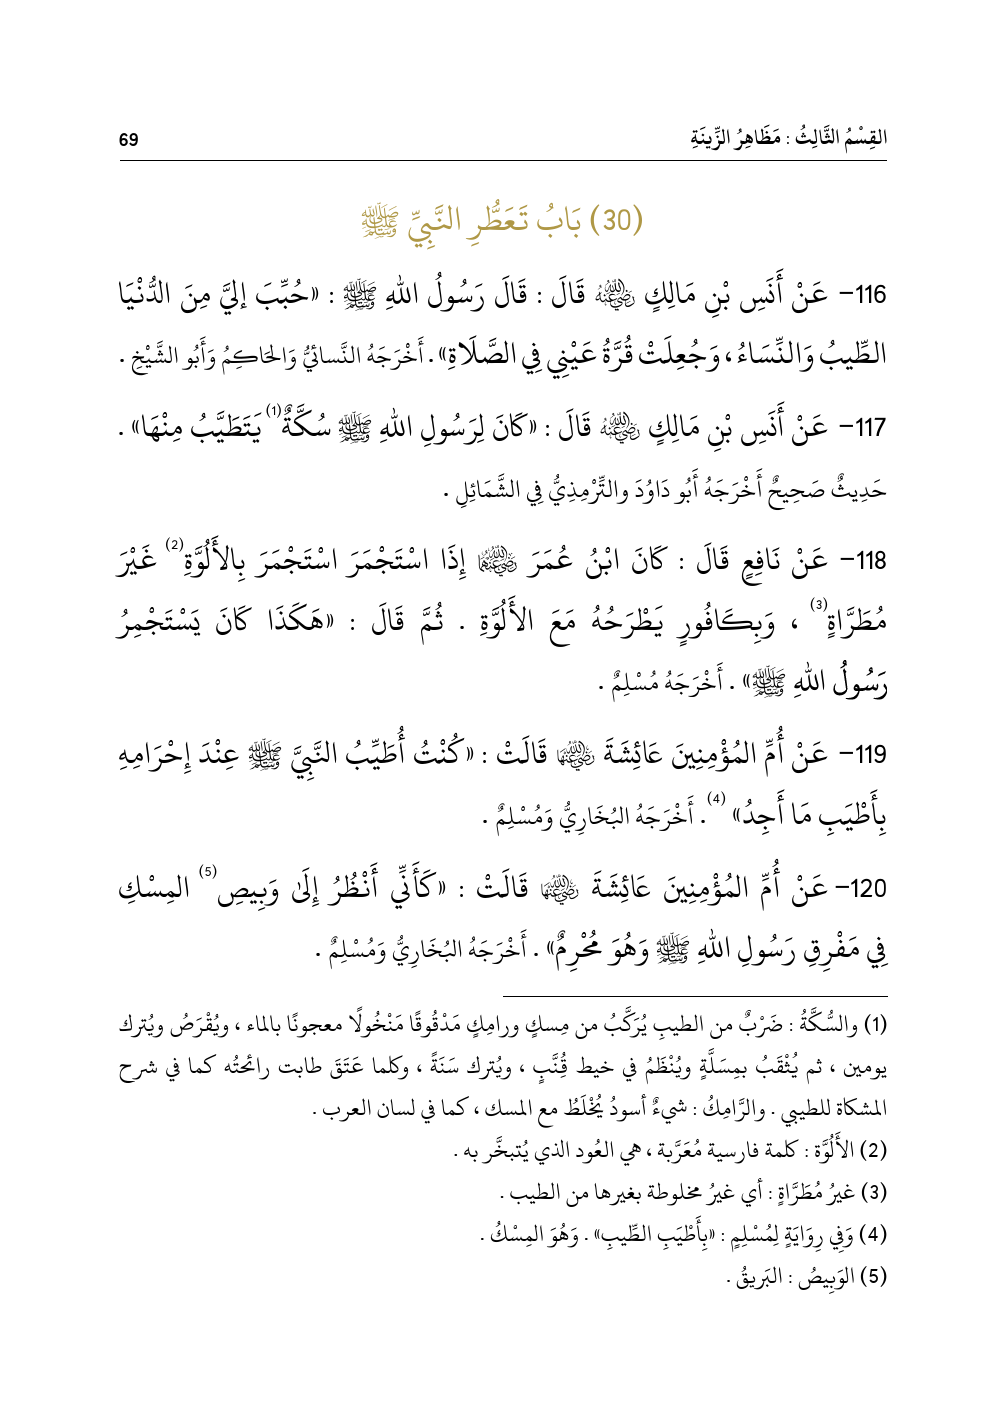 القِسْمُ الثَّالِثُ : مَظَاهِرُ الزِّينَةِ 69
(30) بَابُ تَعَطُّرِ النَّبِيِّ ﷺ
116- عَنْ أَنَسِ بْنِ مَالِكٍ رَضِيَ اللهُ عَنْهُ قَالَ : قَالَ رَسُولُ اللهِ ﷺ : «حُبِّبَ إليَّ مِنَ الدُّنْيَا
الطِّيبُ وَالنِّسَاءُ ، وَجُعِلَتْ قُرَّةُ عَيْنِي فِي الصَّلَاةِ» . أَخْرَجَهُ النَّسائيُّ وَالحَاكِمُ وَأَبُو الشَّيْخِ .
117- عَنْ أَنَسِ بْنِ مَالِكٍ رَضِيَ اللهُ عَنْهُ قَالَ : «كَانَ لِرَسُولِ اللهِ ﷺ سُكَّةٌ(1) يَتَطَيَّبُ مِنْهَا» .
حَدِيثٌ صَحِيحٌ أَخْرَجَهُ أَبُو دَاوُدَ والتِّرْمِذِيُّ فِي الشَّمَائِلِ .
118- عَنْ نَافِعٍ قَالَ : كَانَ ابْنُ عُمَرَ رَضِيَ اللهُ عَنْهُمَا إِذَا اسْتَجْمَرَ اسْتَجْمَرَ بِالأَلُوَّةِ(2) غَيْرَ
مُطَرَّاةٍ(3) ، وَبِكَافُورٍ يَطْرَحُهُ مَعَ الأَلُوَّةِ . ثُمَّ قَالَ : «هَكَذَا كَانَ يَسْتَجْمِرُ
رَسُولُ اللهِ ﷺ» . أَخْرَجَهُ مُسْلِمٌ .
119- عَنْ أُمِّ المُؤْمِنِينَ عَائِشَةَ رَضِيَ اللهُ عَنْهَا قَالَتْ : «كُنْتُ أُطَيِّبُ النَّبِيَّ ﷺ عِنْدَ إِحْرَامِهِ
بِأَطْيَبِ مَا أَجِدُ» (4). أَخْرَجَهُ البُخَارِيُّ وَمُسْلِمٌ .
120- عَنْ أُمِّ المُؤْمِنِينَ عَائِشَةَ رَضِيَ اللهُ عَنْهَا قَالَتْ : «كَأَنِّي أَنْظُرُ إِلَىٰ وَبِيصِ(5) المِسْكِ
فِي مَفْرِقِ رَسُولِ اللهِ ﷺ وَهُوَ مُحْرِمٌ» . أَخْرَجَهُ البُخَارِيُّ وَمُسْلِمٌ .
(1) والسُّكَّةُ : ضَرْبٌ من الطيبِ يُرَكَّبُ من مِسكٍ ورامِكٍ مَدْقُوقًا مَنْخُولًا معجونًا بالماء ، ويُقْرَصُ ويُترك
يومين ، ثم يُثْقَبُ بمِسَلَّةٍ ويُنْظَمُ في خيط قِنَّبٍ ، ويُترك سَنَةً ، وكلما عَتَقَ طابت رائحتُه كما في شرح
المشكاة للطيبي . والرَّامِكُ : شيءٌ أسودُ يُخْلَطُ مع المسك ، كما في لسان العرب .
(2) الأَلُوَّة : كلمة فارسية مُعَرَّبة ، هي العُود الذي يُتبخَّر به .
(3) غيرُ مُطَرَّاةٍ : أي غيرُ مخلوطة بغيرها من الطيب .
(4) وَفِي رِوَايَةٍ لِمُسْلِمٍ : «بِأَطْيَبِ الطِّيبِ» . وَهُوَ المِسْكُ .
(5) الوَبِيصُ : البَريقُ .